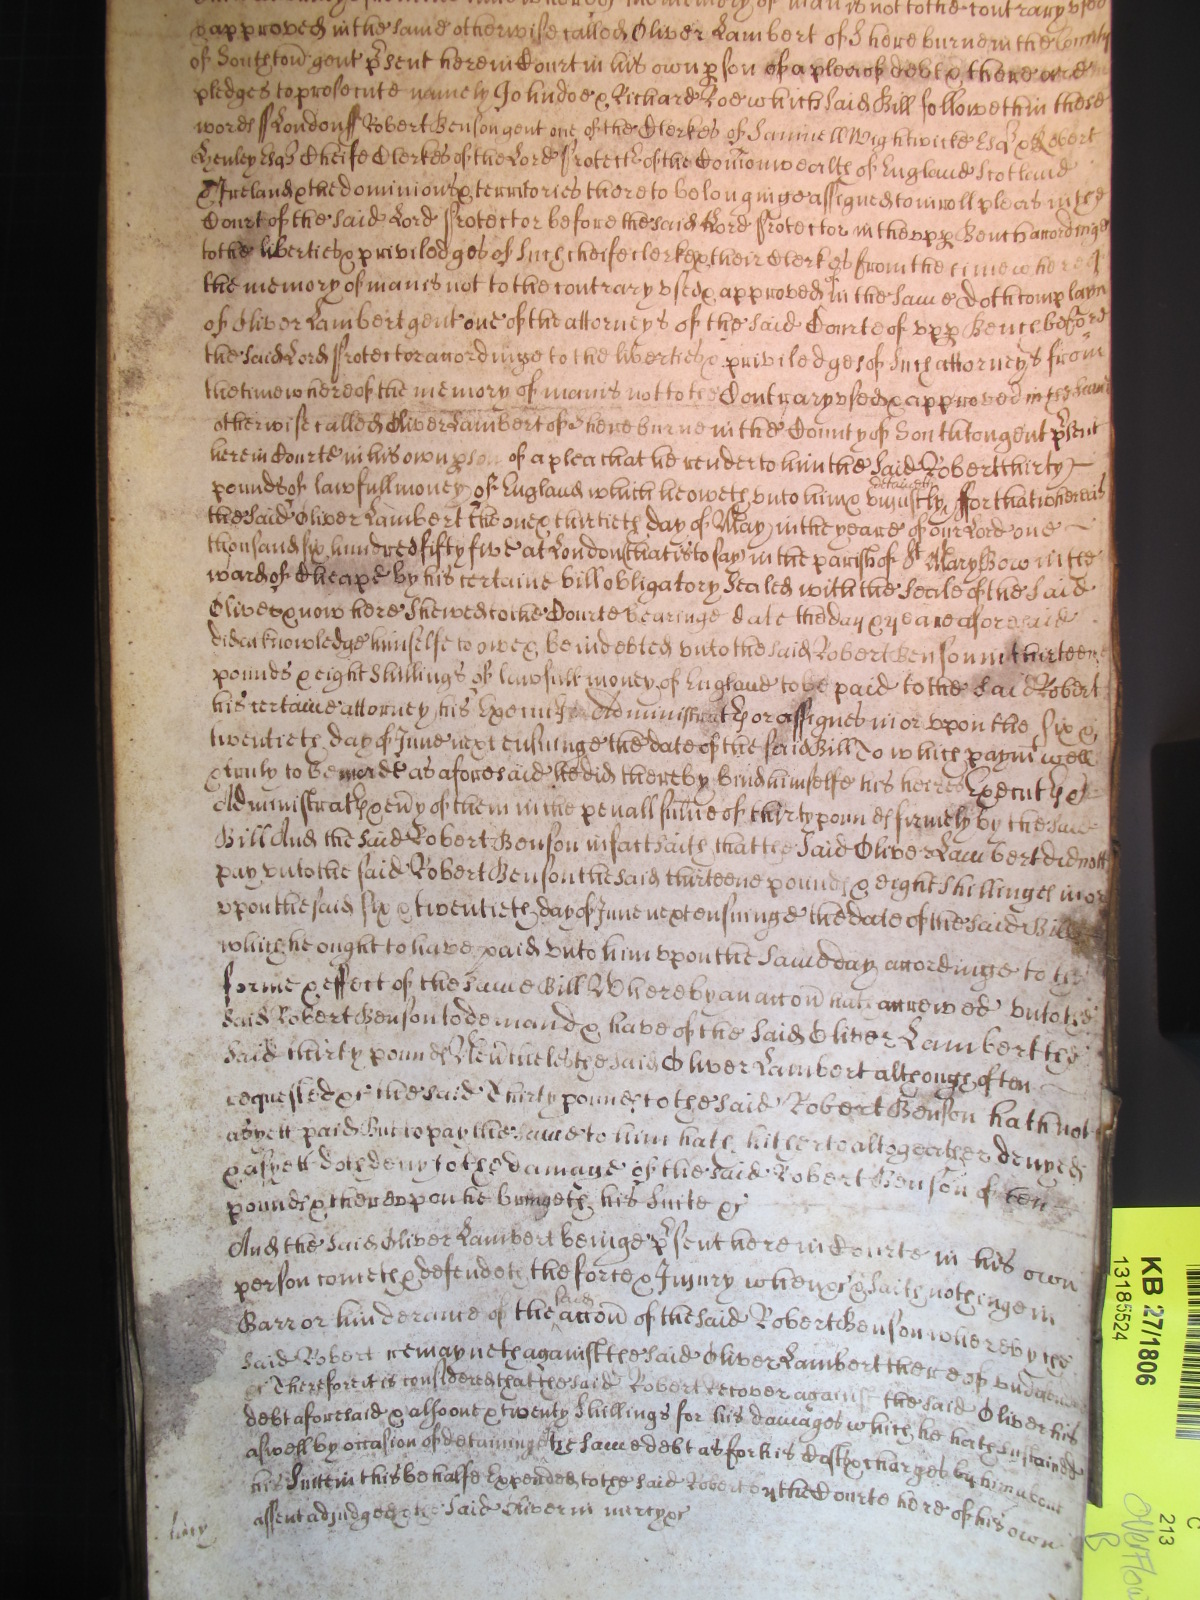 memory of man is not to the contrary used
& approved in the same otherwise called Oliver Lambert of Shereburne in the County
of Southton gent psent here in Court in his own pson of a plea of debt & there are
pledges to prosecute namely John doe & Richard Roe which said Bill followeth in these
words ss London ss Robert Benson gent one of the Clerkes of Samuell Wightwicke Esqr & Robert
Henley Esqr Cheife Clerkes of the Lord Protector of the Comonwealth of England Scotland
& Ireland & the dominions & territories thereto belonginge assigned to inroll pleas in the
Court of the said Lord Protector before the said Lord Protector in the upp Bench accordinge
to the liberties & priviledges of such cheife clerkes & their Clerkes from the time whereof
the memory of man is not to the contrary used & approved of in the same Doth complayn
of Oliver Lambert gent one of the attorneys of the said Courte of upp Bench before
the said Lord Protector accordinge to the liberties & priviledges of such attorneys from
the time whereof the memory of man is not to the Contrary used & approved in the same
otherwise called Oliver Lambert of Shereburne in the County of Southton gent psent
here in Courte in his own pson of a plea that he render to him the said Robert thirty
pounds of lawfull money of England which he oweth unto him & detaineth uniustly ffor that whereas
the said Oliver Lambert the one & thirtieth day of May in the yeare of our Lord one
thousand six hundred fifty five at London that is to say in the parish of St Mary Bow in the
ward of Cheape by his certaine bill obligatory sealed with the seale of the said
Oliver & now here shewed to the Courte bearinge date the day & yeare aforesaid
did acknowledge himselfe to owe & be indebted unto the said Robert Benson in thirteene
pounds & eight shillings of lawfull money of England to be paid to the said Robert
his certaine attorney his Execut Administrat or assignes in or upon the six &
twentieth day of June next ensuinge the date of the said Bill To which paymt well
& truly to be made as aforesaid he did thereby bind himselfe his heires Execut &
Administrat & evy of them in the penall sume of thirty pounds firmely by the said
Bill And the said Robert Benson in fact saith that the said Oliver Lambert did nott
pay unto the said Robert Benson the said thirteene pounds & eight shillinges in or
upon the said six & twentieth day of June next ensuinge the date of the said Bill
which he ought to have paid unto him upon the same day accordinge to the
forme & effect of the same Bill Whereby an accon hath accrewed unto the
said Robert Benson to demand & have of the said Oliver Lambert the
said thirty pounds Nevtheles the said Oliver Lambert although often
requested &c the said Thirty pounds to the said Robert Benson hath not
as yett paid But to pay the same to him hath hitherto altogeather denyed
& as yett doth deny to the damage of the said Robert Benson of ten
pounds & thereupon he bringeth his suite &c
And the said Oliver Lambert beinge psent here in Courte in his own
person cometh & defendeth the force & Injury when &c & saith nothinge in
Barr or hinderance of the said accon of the said Robert Benson whereby the
said Robert remayneth against the said Oliver Lambert thereof undefended
&c Therefore it is considered that the said Robert recover against the said Oliver his
debt aforesaid & alsoe one & twenty shillings for his damages which he hath sustained
aswell by occasion of detaininge the same debt as for his Costs & charges by him about
his suite in this behalfe Expended to the said Robert by the Courte here of his own
assent adjudged & the said Oliver in mercy &c
mcy
KB 27/1806
13185524
C
213
Overflow
B